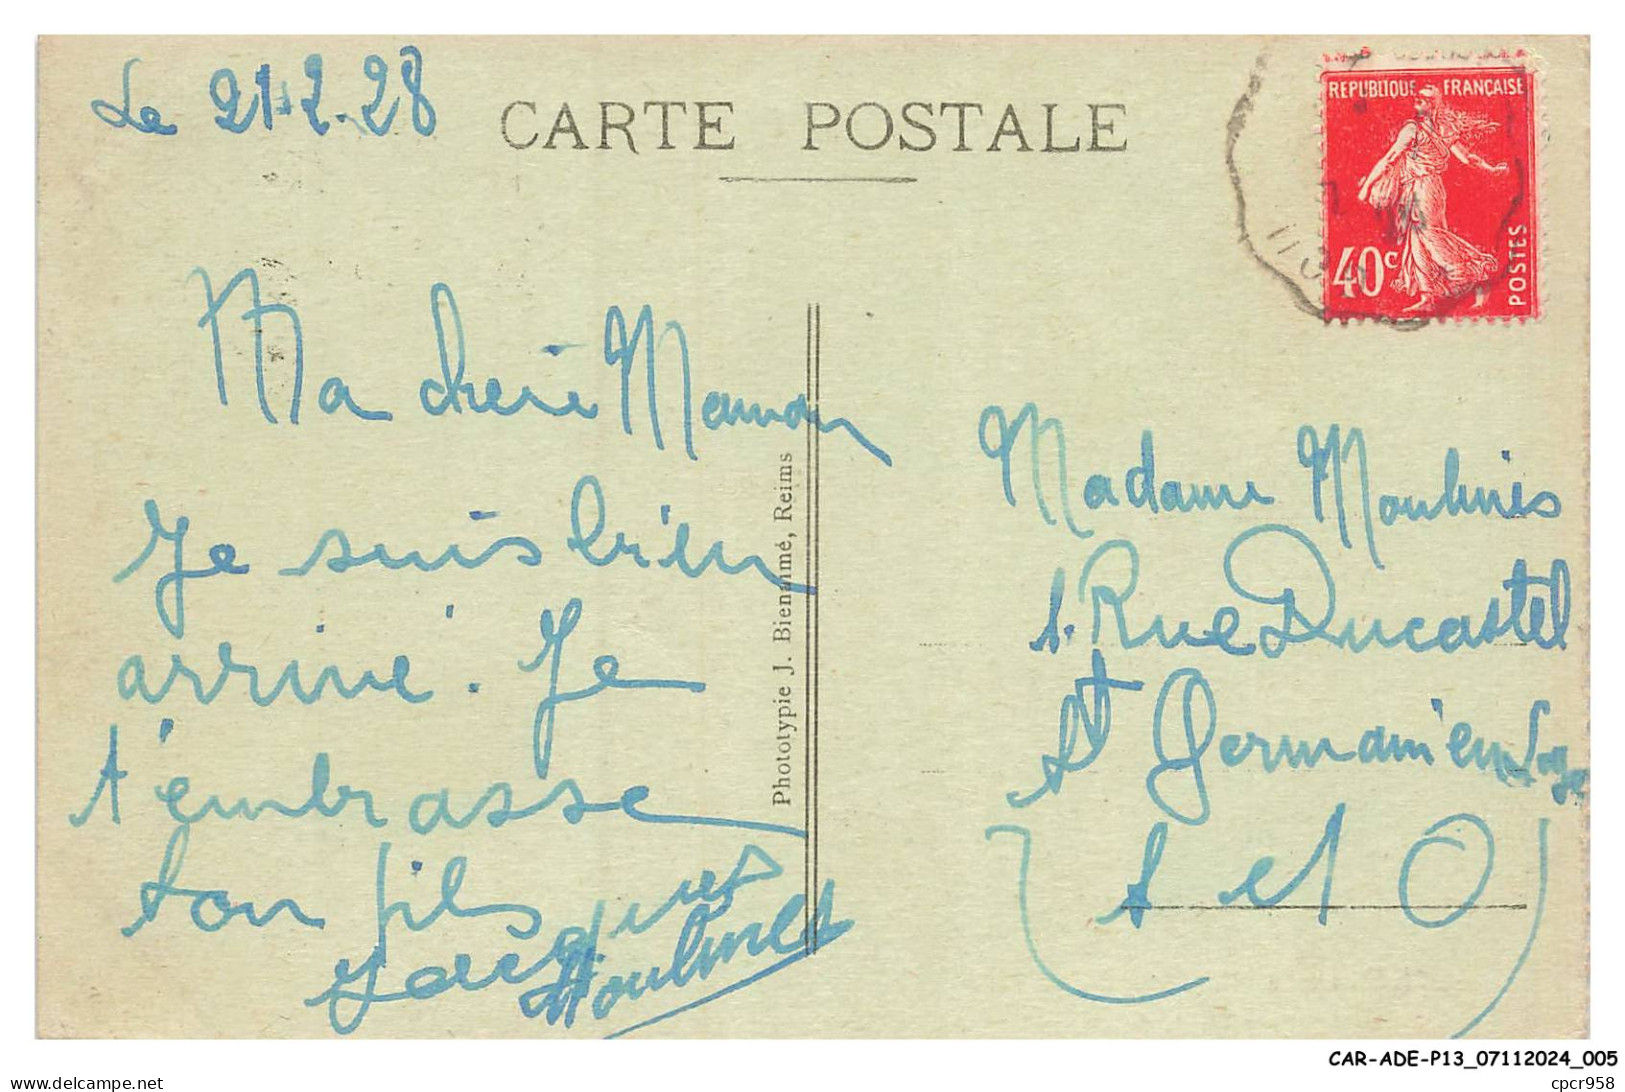 Le 21-2-28
CARTE POSTALE
REPUBLIQUE FRANÇAISE
40c
POSTES
Ma chère Maman
Je suis bien
arrivé. Je
t'embrasse
ton fils
Jacques
Moulines
Phototypie J. Bienaimé, Reims
Madame Moulines
1. Rue Ducastel
St Germain en Laye
S et O
CAR-ADE-P13_07112024_005
cpcr958